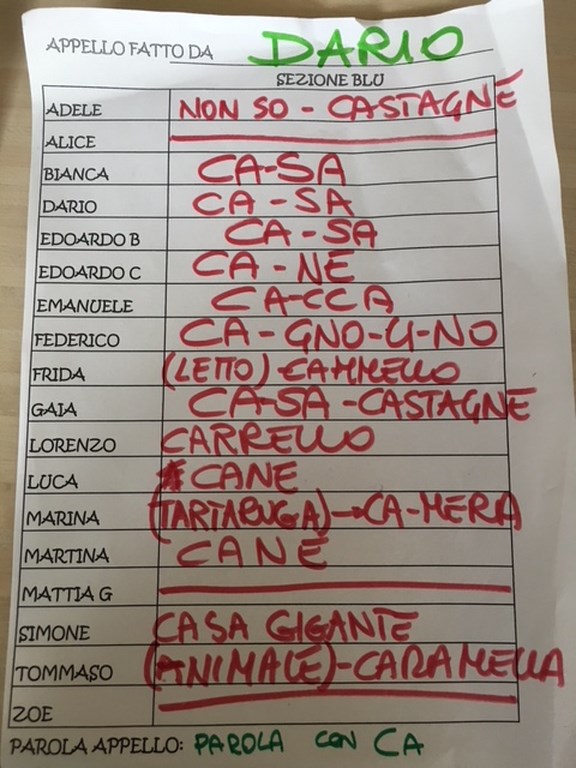 APPELLO FATTO DA DARIO
SEZIONE BLU
ADELE NON SO - CASTAGNE
ALICE
BIANCA CA-SA
DARIO CA - SA
EDOARDO B CA - SA
EDOARDO C CA - NE
EMANUELE CA-CCA
FEDERICO CA - GNO-LI-NO
FRIDA (LETTO) - CAMMELLO
GAIA CA-SA - CASTAGNE
LORENZO CARRELLO
LUCA CANE
MARINA (TARTARUGA) → CA-MERA
MARTINA CANE
MATTIA G
SIMONE CASA GIGANTE
TOMMASO (ANIMALE) - CARAMELLA
ZOE
PAROLA APPELLO: PAROLA CON CA